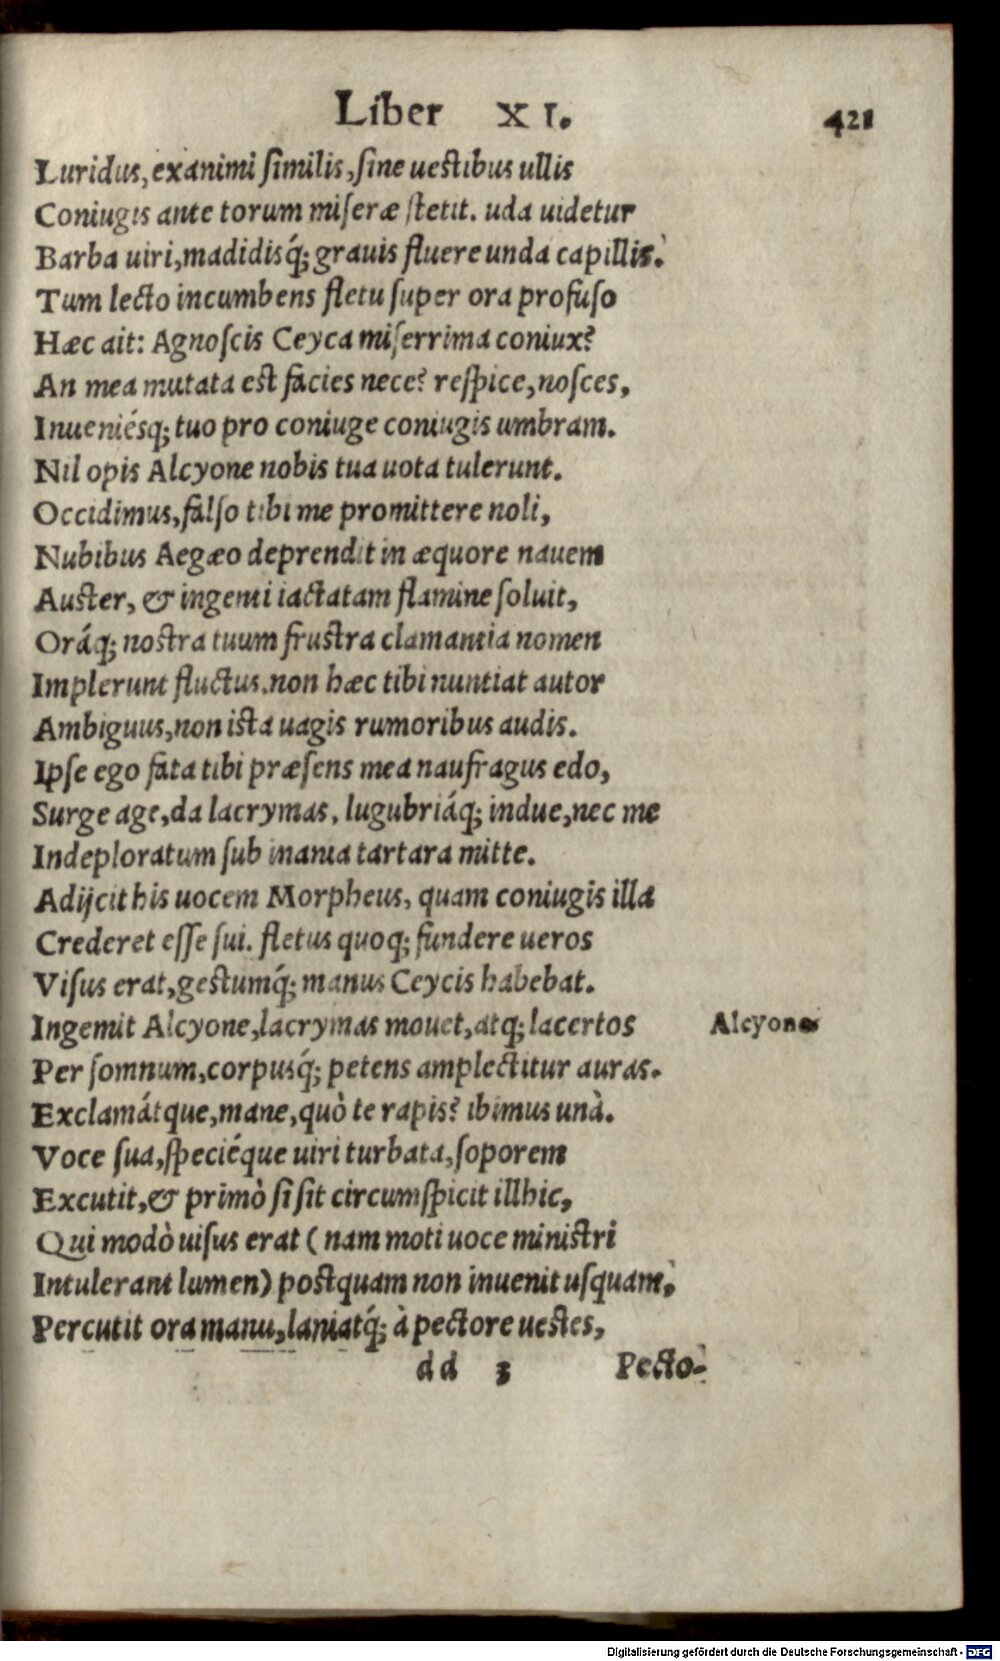 Liber XI. 421
Luridus, exanimi ſimilis, ſine ueſtibus ullis
Coniugis ante torum miſeræ ſtetit. uda uidetur
Barba uiri, madidisq́; grauis fluere unda capillis.
Tum lecto incumbens fletu ſuper ora profuſo
Hæc ait: Agnoſcis Ceyca miſerrima coniux?
An mea mutata eſt facies nece? reſpice, noſces,
Inueniésq; tuo pro coniuge coniugis umbram.
Nil opis Alcyone nobis tua uota tulerunt.
Occidimus, falſo tibi me promittere noli,
Nubibus Aegæo deprendit in æquore nauem
Auſter, & ingenti iactatam flamine ſoluit,
Oráq; noſtra tuum fruſtra clamantia nomen
Implerunt fluctus. non hæc tibi nuntiat autor
Ambiguus, non iſta uagis rumoribus audis.
Ipſe ego fata tibi præſens mea naufragus edo,
Surge age, da lacrymas, lugubriáq; indue, nec me
Indeploratum ſub inania tartara mitte.
Adijcit his uocem Morpheus, quam coniugis illa
Crederet eſſe ſui. fletus quoq; fundere ueros
Viſus erat, geſtumq́; manus Ceycis habebat.
Ingemit Alcyone, lacrymas mouet, atq; lacertos
Alcyone
Per ſomnum, corpusq́; petens amplectitur auras.
Exclamátque, mane, quò te rapis? ibimus unà.
Voce ſua, ſpeciéque uiri turbata, ſoporem
Excutit, & primò ſi ſit circumſpicit illhic,
Qui modò uiſus erat ( nam moti uoce miniſtri
Intulerant lumen) poſtquam non inuenit uſquam,
Percutit ora manu, laniatq́; à pectore ueſtes,
dd 3 Pecto-
Digitalisierung gefördert durch die Deutsche Forschungsgemeinschaft - DFG